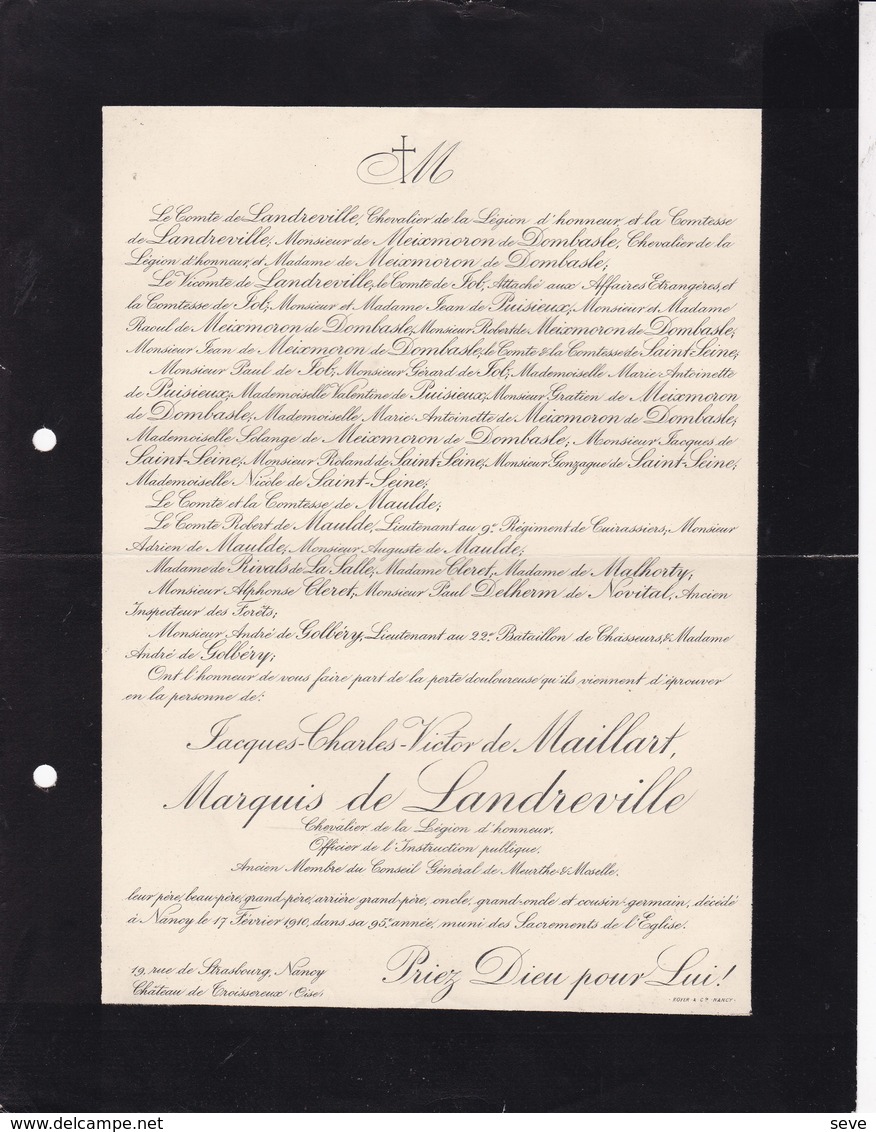 M
Le Comte de Landreville, Chevalier de la Légion d'honneur, et la Comtesse
de Landreville; Monsieur de Meixmoron de Dombasle, Chevalier de la
Légion d'honneur, et Madame de Meixmoron de Dombasle;
Le Vicomte de Landreville; le Comte de Job, Attaché aux Affaires Etrangères, et
la Comtesse de Job; Monsieur et Madame Jean de Puisieux; Monsieur et Madame
Raoul de Meixmoron de Dombasle; Monsieur Robert de Meixmoron de Dombasle;
Monsieur Jean de Meixmoron de Dombasle; le Comte & la Comtesse de Saint-Seine;
Monsieur Paul de Job; Monsieur Gérard de Job; Mademoiselle Marie-Antoinette
de Puisieux; Mademoiselle Valentine de Puisieux; Monsieur Gratien de Meixmoron
de Dombasle; Mademoiselle Marie-Antoinette de Meixmoron de Dombasle;
Mademoiselle Solange de Meixmoron de Dombasle; Monsieur Jacques de
Saint-Seine; Monsieur Roland de Saint-Seine; Monsieur Gonzague de Saint-Seine;
Mademoiselle Nicole de Saint-Seine;
Le Comte et la Comtesse de Maulde;
Le Comte Robert de Maulde, Lieutenant au 9e Régiment de Cuirassiers; Monsieur
Adrien de Maulde; Monsieur Auguste de Maulde;
Madame de Rivals de La Salle; Madame Cleret; Madame de Malhorty;
Monsieur Alphonse Cleret; Monsieur Paul Delherm de Novital, Ancien
Inspecteur des Forêts;
Monsieur André de Golbéry, Lieutenant au 22e Bataillon de Chasseurs, & Madame
André de Golbéry;
Ont l'honneur de vous faire part de la perte douloureuse qu'ils viennent d'éprouver
en la personne de:
Jacques-Charles-Victor de Maillart,
Marquis de Landreville
Chevalier de la Légion d'honneur,
Officier de l'Instruction publique,
Ancien Membre du Conseil Général de Meurthe-&-Moselle,
leur père, beau-père, grand-père, arrière grand-père, oncle, grand-oncle et cousin-germain, décédé
à Nancy le 17 Février 1910, dans sa 95e année, muni des Sacrements de l'Eglise.
Priez Dieu pour Lui!
19, rue de Strasbourg, Nancy
Château de Troissereux (Oise)
NANCY
seve